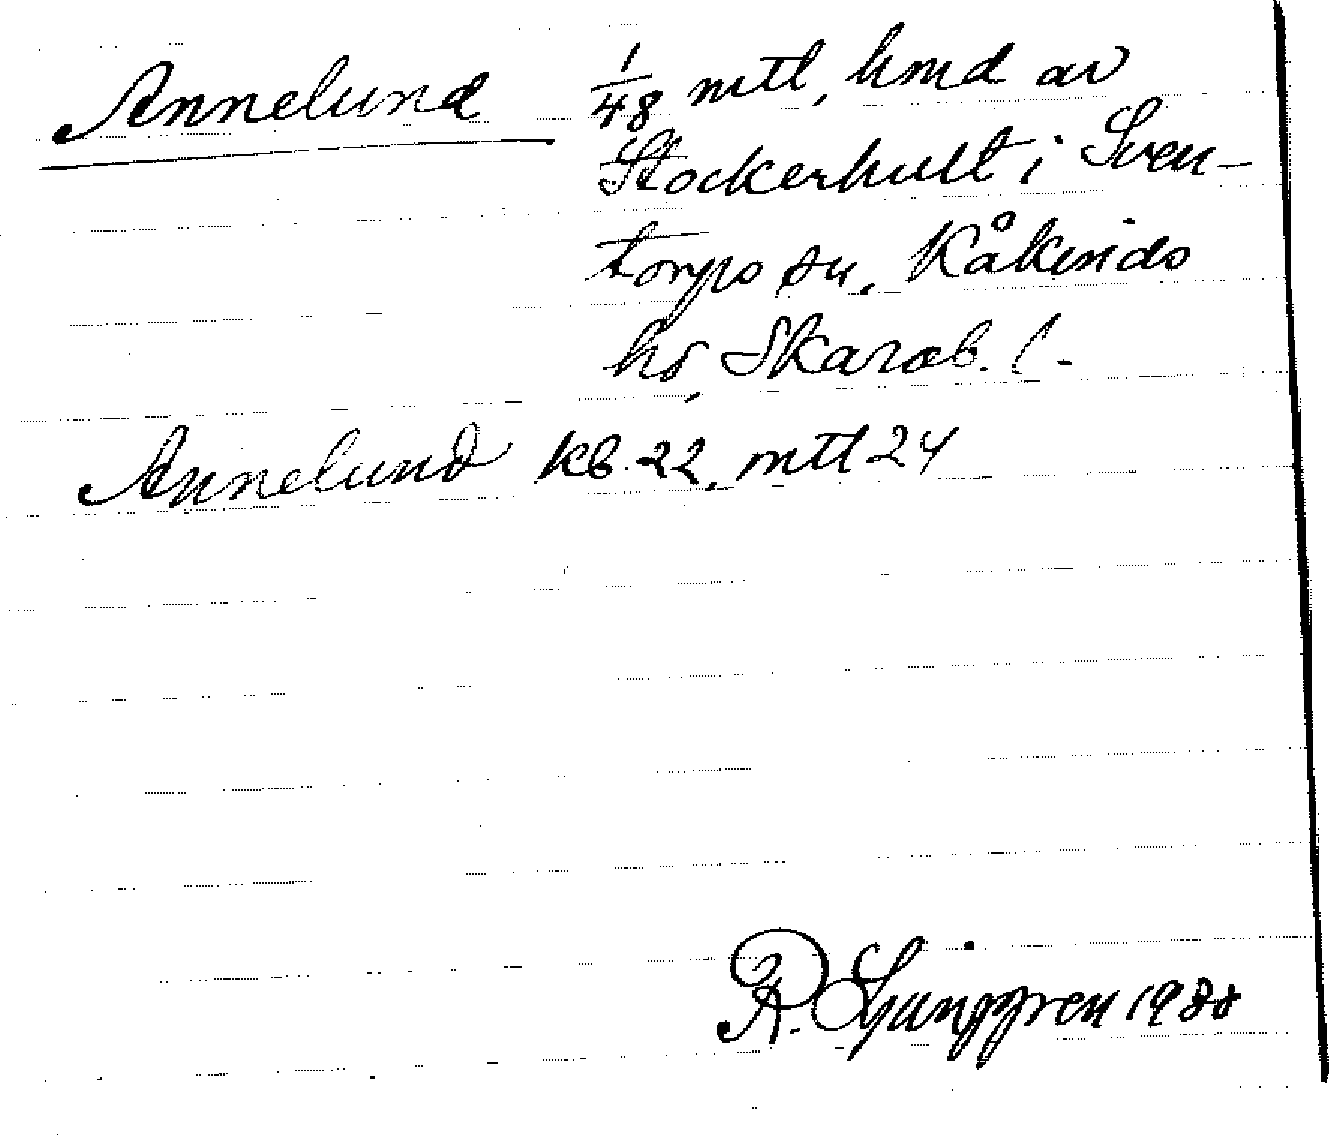 Annelund 1/48 mtl, hmd av
Stockerhult i Sven-
torps sn, Kåkinds
hd, Skarab. l.
Annelund kb 22, mtl 24
R. Ljunggren 1930